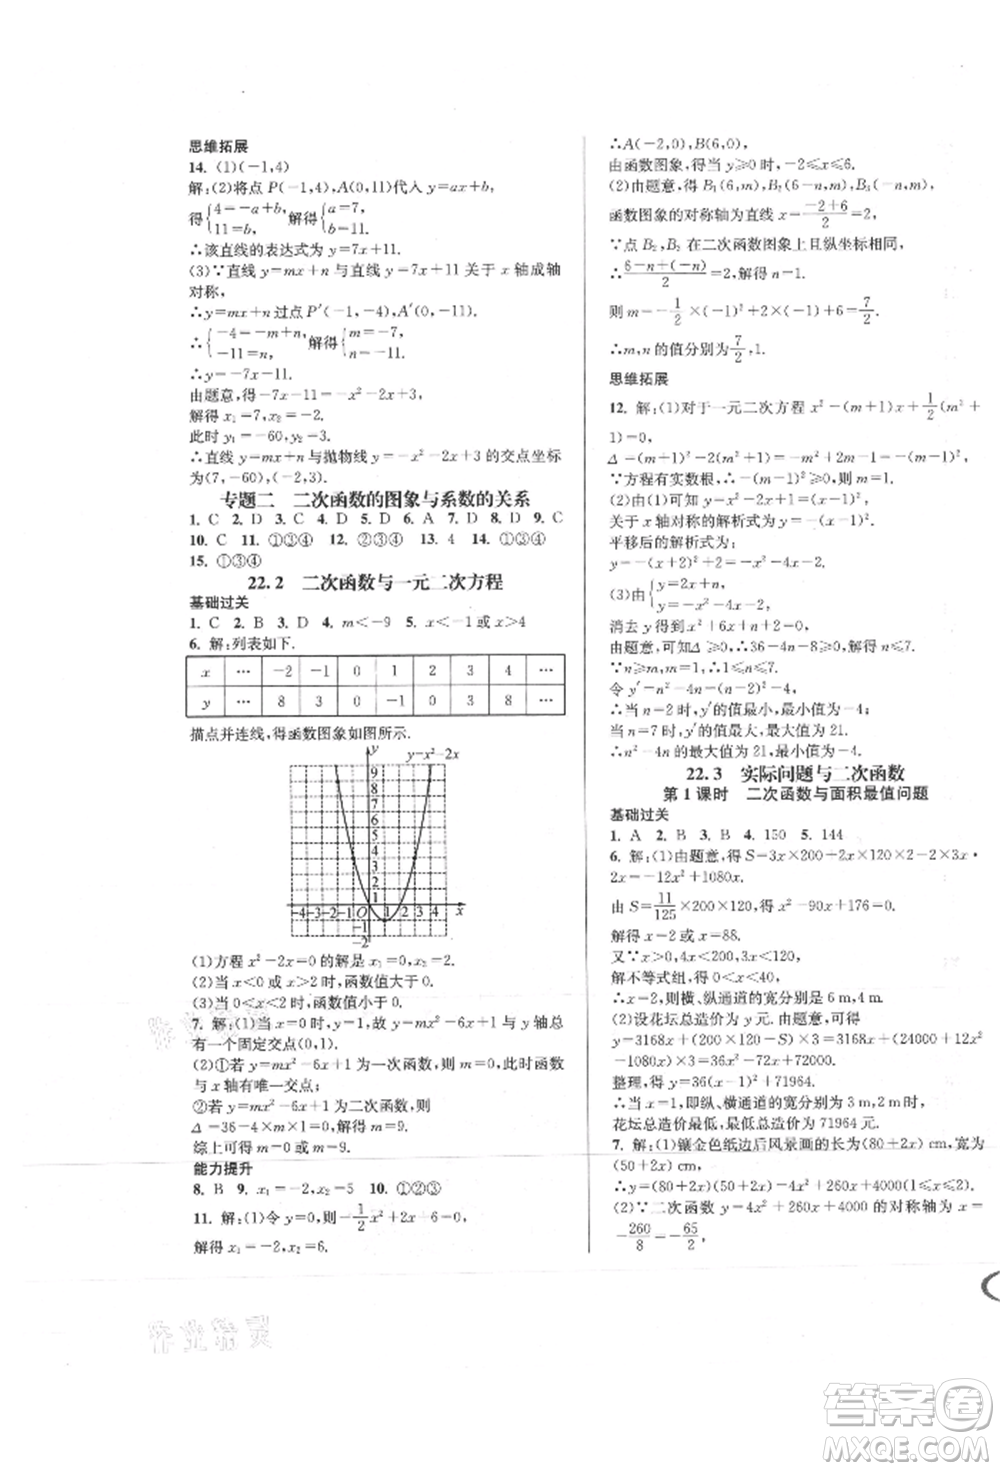 思维拓展
14. (1)(-1,4)
解:(2)将点 P(-1,4),A(0,11)代入 y=ax+b,
得{4=-a+b, 11=b, 解得{a=7, b=11.
∴该直线的表达式为 y=7x+11.
(3)∵直线 y=mx+n 与直线 y=7x+11 关于 x 轴成轴
对称,
∴y=mx+n 过点 P′(-1,-4),A′(0,-11),
∴{-4=-m+n, -11=n, 解得{m=-7, n=-11.
∴y=-7x-11.
由题意,得-7x-11=-x²-2x+3,
解得 x₁=7,x₂=-2.
此时 y₁=-60,y₂=3.
∴直线 y=mx+n 与抛物线 y=-x²-2x+3 的交点坐标
为(7,-60),(-2,3).
专题二 二次函数的图象与系数的关系
1. C 2. D 3. C 4. D 5. D 6. A 7. D 8. D 9. C
10. C 11. ①③④ 12. ①③④ 13. 4 14. ①③④
15. ①③④
22.2 二次函数与一元二次方程
基础过关
1. C 2. B 3. D 4. m<-9 5. x<-1 或 x>4
6. 解:列表如下.
x … -2 -1 0 1 2 3 4 …
y … 8 3 0 -1 0 3 8 …
描点并连线,得函数图象如图所示.
y y=x²-2x
9
8
7
6
5
4
3
2
1
-4 -3 -2 -1 O 1 2 3 4 x
-1
-2
(1)方程 x²-2x=0 的解是 x₁=0,x₂=2.
(2)当 x<0 或 x>2 时,函数值大于 0.
(3)当 0<x<2 时,函数值小于 0.
7. 解:(1)当 x=0 时,y=1,故 y=mx²-6x+1 与 y 轴总
有一个固定交点(0,1).
(2)①若 y=mx²-6x+1 为一次函数,则 m=0,此时函数
与 x 轴有唯一交点;
②若 y=mx²-6x+1 为二次函数,则
Δ=36-4×m×1=0,解得 m=9.
综上可得 m=0 或 m=9.
能力提升
8. B 9. x₁=-2,x₂=5 10. ①②③
11. 解:(1)令 y=0,则-1/2x²+2x+6=0,
解得 x₁=-2,x₂=6.
∴A(-2,0),B(6,0).
由函数图象,得当 y≥0 时,-2≤x≤6.
(2)由题意,得 B₁(6,m),B₂(6-n,m),B₃(-n,m),
函数图象的对称轴为直线 x=(-2+6)/2=2.
∵点 B₂,B₃ 在二次函数图象上且纵坐标相同,
∴(6-n+(-n))/2=2,解得 n=1.
则 m=-1/2×(-1)²+2×(-1)+6=7/2.
∴m,n 的值分别为7/2,1.
思维拓展
12. 解:(1)对于一元二次方程 x²-(m+1)x+1/2(m²+
1)=0,
Δ=(m+1)²-2(m²+1)=-m²+2m-1=-(m-1)².
∵方程有实数根,∴-(m-1)²≥0,∴m=1.
(2)由(1)可知 y=x²-2x+1=(x-1)²,
关于 x 轴对称的解析式为
平移后的解析式为:
y=-(x+2)²+2=-x²-4x-2.
(3)由
消去 y 得到 x²+6x+2+n=0,
由题意,可知 Δ≥0,∴36-4n-8≥0,
∵n≥m,m=1,∴1≤n≤7.
令 y′=n²-4n=(n-2)²-4,
∴当 n=2 时,y′的值最小,最小值为-4,
当 n=7 时,y′的值最大,最大值为 21.
∴n²-4n 的最大值为 21,最小值为-4.
22.3 实际问题与二次函数
第 1 课时 二次函数与面积最值问题
基础过关
1. A 2. B 3. B 4. 150 5. 144
6. 解:(1)由题意,得 S=3x×200+2x×120×2-2×3x·
2x=-12x²+1080x.
由 S=11/125×200×120,得 x²-90x+176=0,
解得 x=2 或 x=88.
又∵x>0,4x<120,3x<200,
解不等式组,得 0<x<30,
∴x=2,则横、纵通道的宽分别为 6 m,4 m.
(2)设花坛总造价为 y 元.
y=3168x+(200×120-S)×3=3168x+(24000+12x²
-1080x)×3=36x²-72x+72000.
整理,得 y=36(x-1)²+71964.
∴当 x=1,即纵、横通道的宽分别为 3 m,2 m 时,
花坛总造价最低,最低总造价为 71964 元.
7. 解:(1)镶金色纸边后风景画的长为(80+2x) cm,宽为
(50+2x) cm,
∴y=(80+2x)(50+2x)=4x²+260x+4000(1≤x≤2)
(2)∵二次函数 y=4x²+260x+4000 的对称轴为 x=
-260/8=-65/2,
作业精灵
答案圈
MXQE.COM